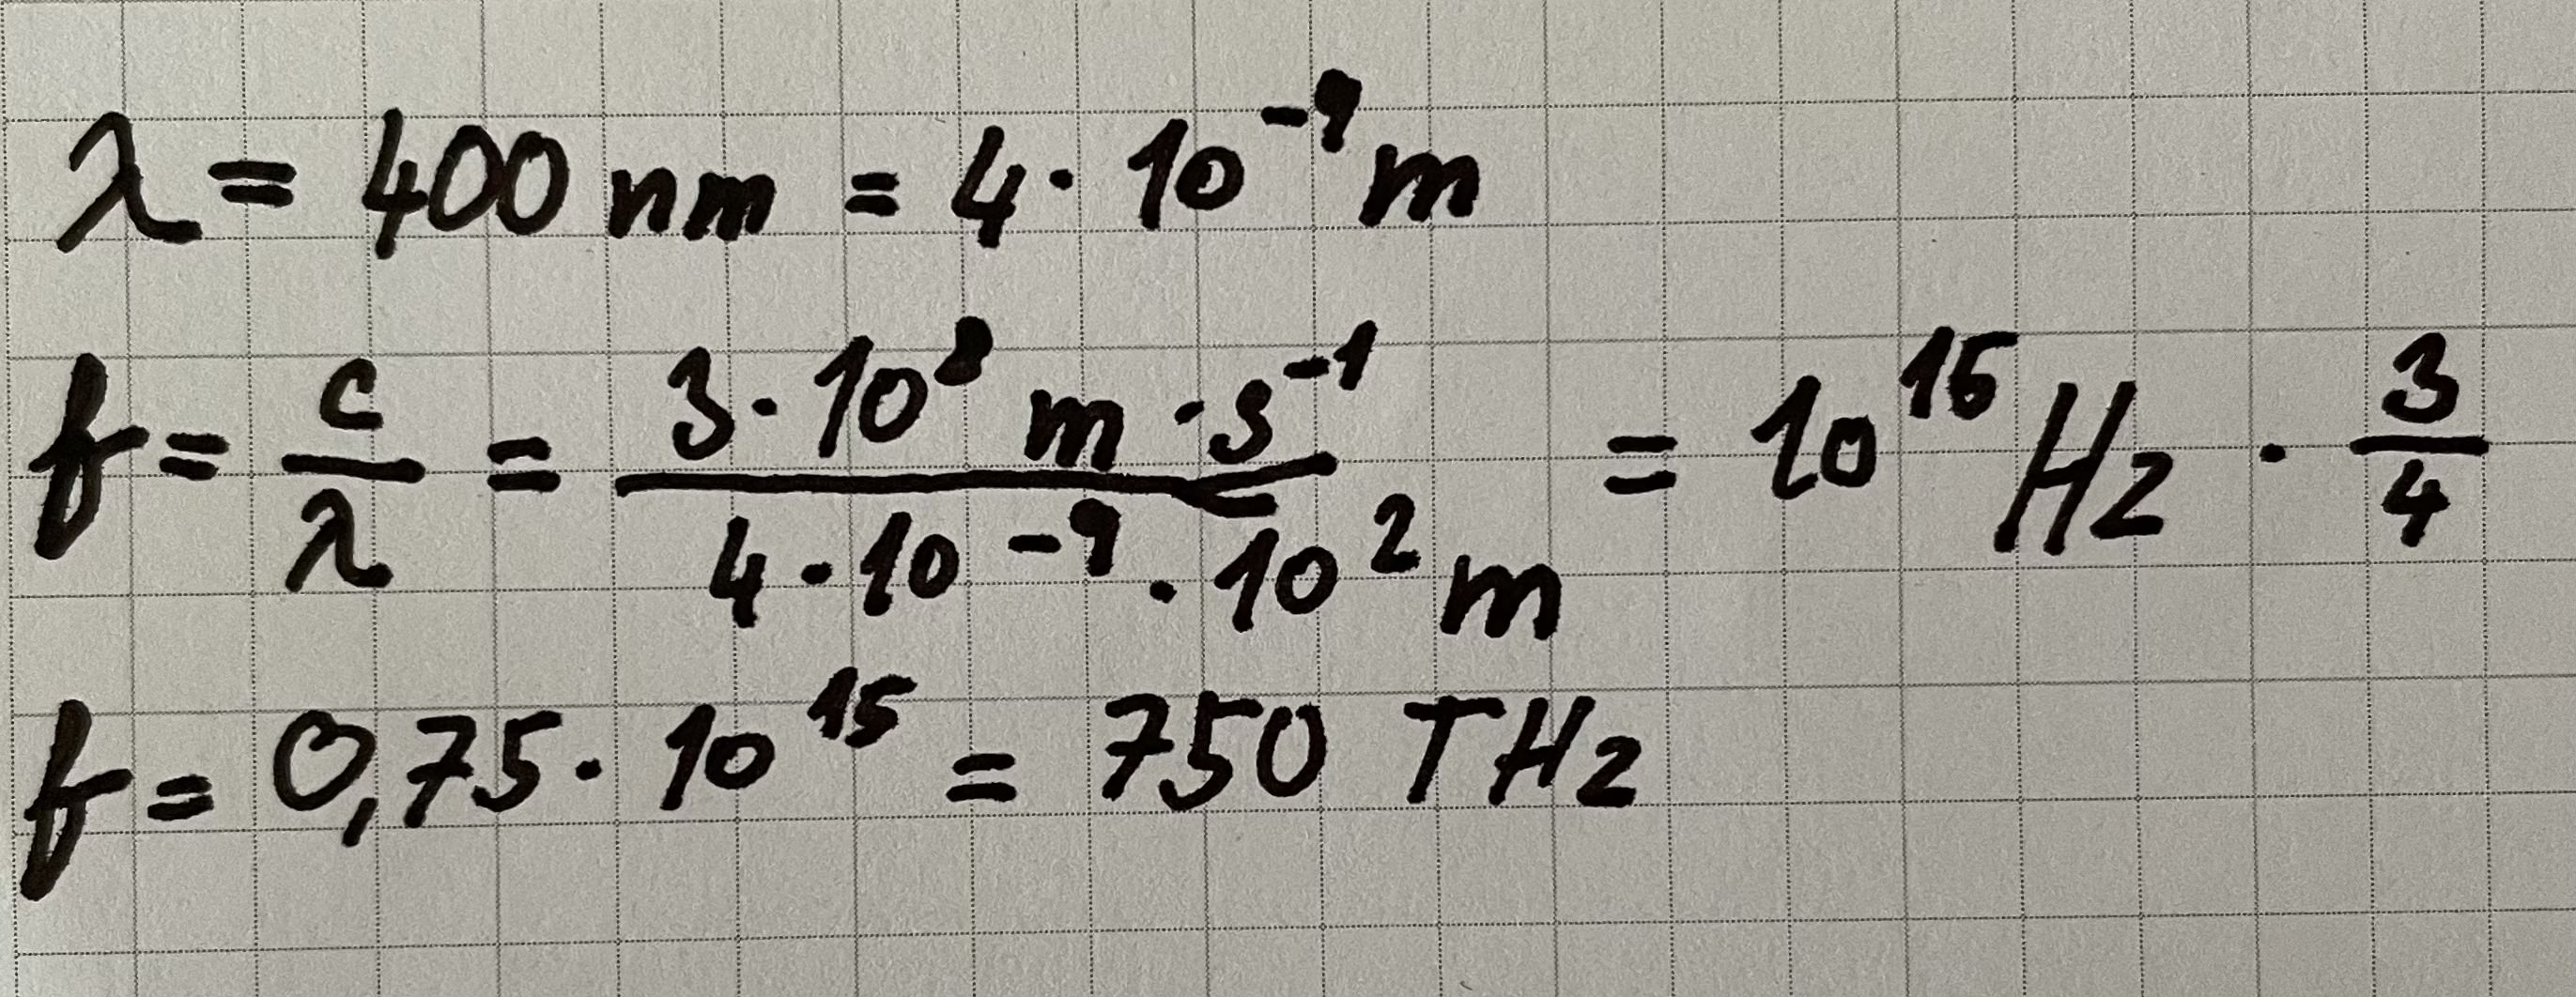 λ = 400 nm = 4 · 10⁻⁹ m
f = c/λ = (3 · 10⁸ m · s⁻¹)/(4 · 10⁻⁹ · 10² m) = 10¹⁵ Hz · 3/4
f = 0,75 · 10¹⁵ = 750 THz